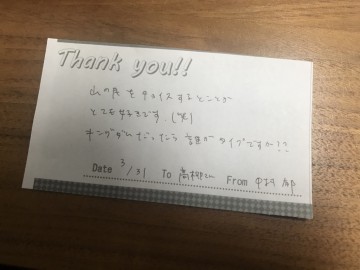 Thank you!!
山の民をチョイスするところが
とても好きです。(笑)
キングダムだったら誰がタイプですか!?
Date 3/31 To 高梆さん From 中村 郁